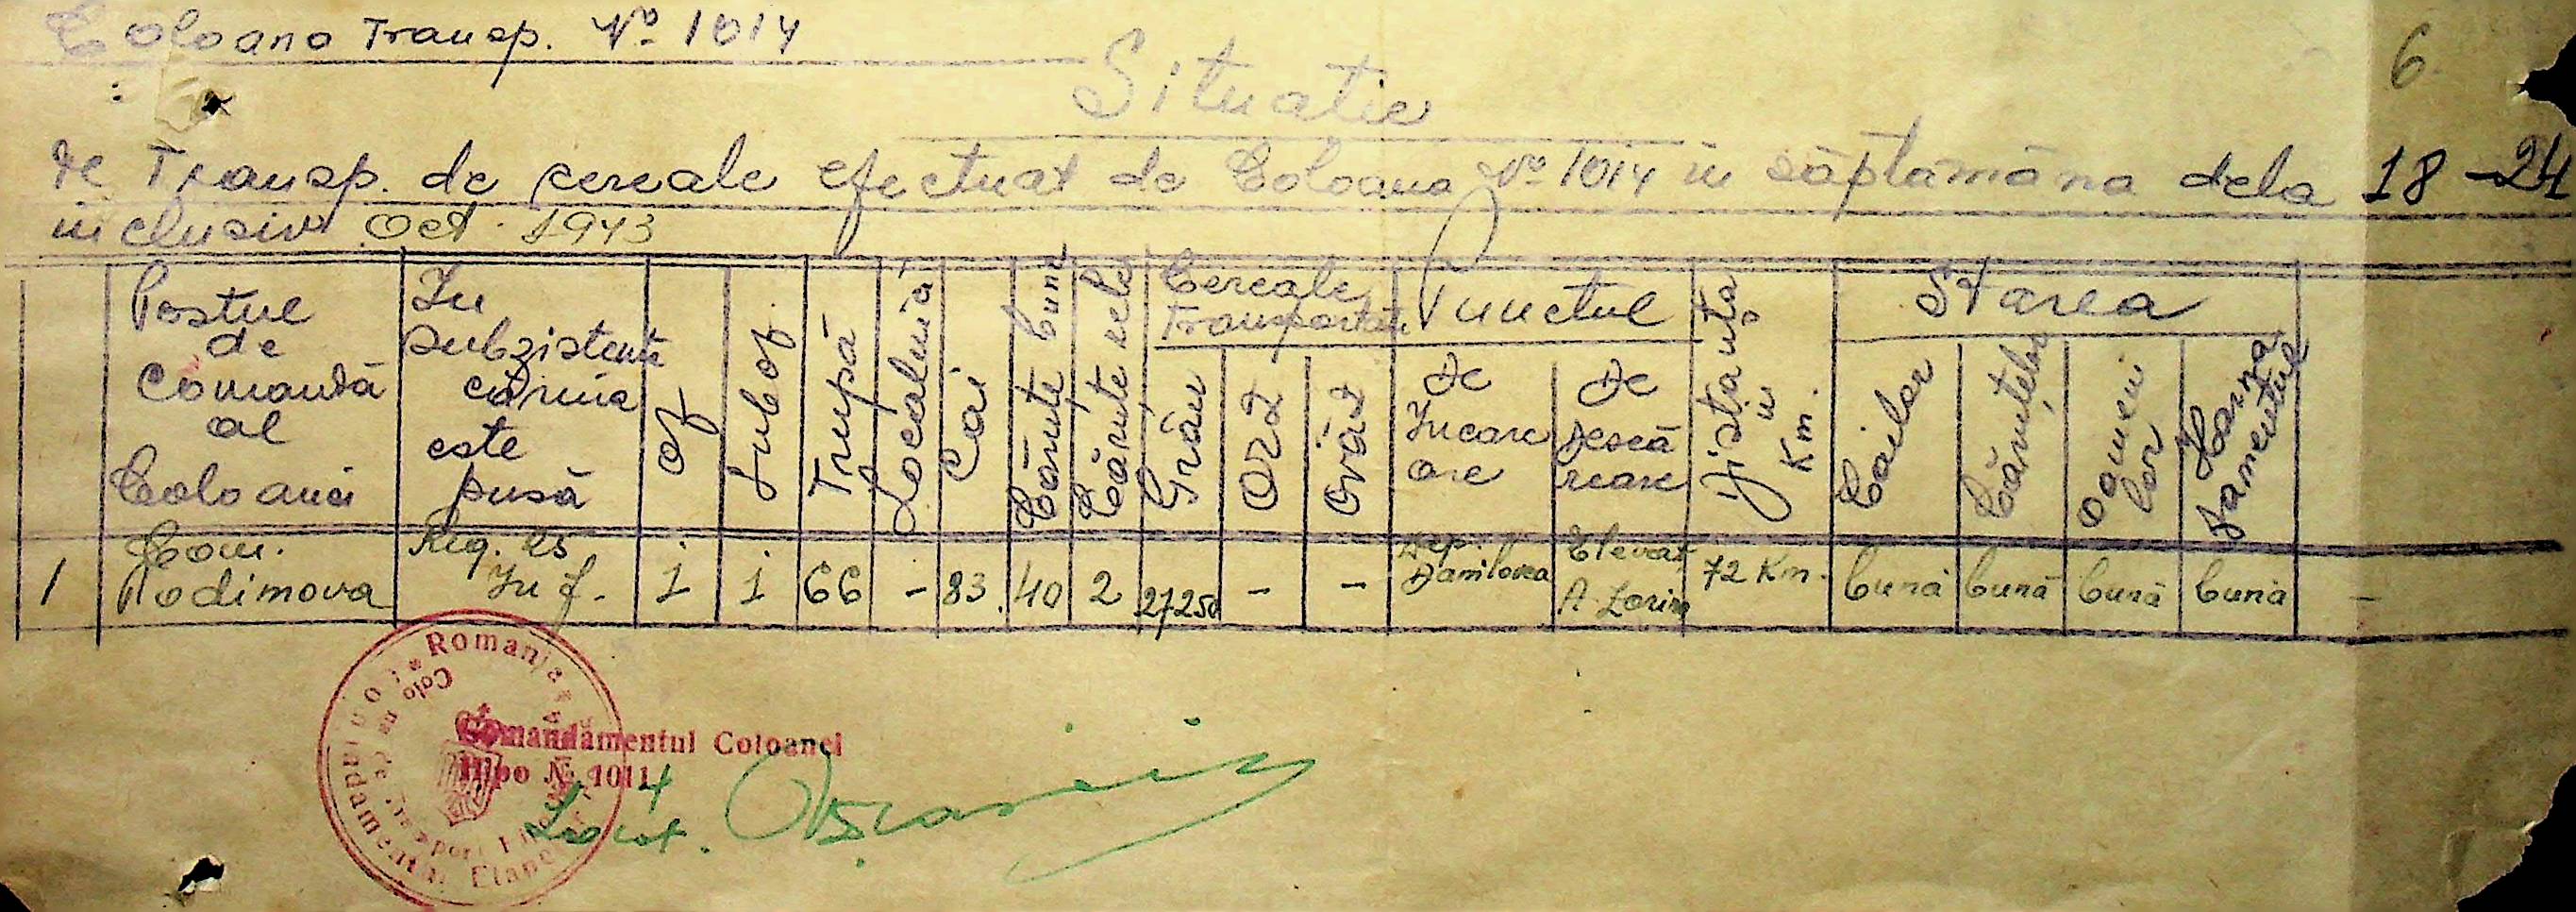 Coloana Transp. No 1014
6
Situatie
de Transp. de cereale efectuat de Coloana No 1014 in săptămâna dela 18 - 24
inclusiv Oct. 1943
Postul de Comandă al Coloanei
In subzistenta căruia este pusă
of
Subof
Trupă
Cai
Cărute bune
Cărute rele
Cereale Transportate
Grâu
Orz
Ovăz
Punctul
De Incarcare
De Descărcare
Distanta in Km.
Starea
Cailor
Căruțelor
Oamenilor
Harnasamentului
1 Com. Podimova Reg. 25 Inf. 1 1 66 - 83 40 2 27250 - - Dep. Danilovca Elevat A. Zorin 72 Km. bună bună bună bună -
Romania
Comandamentul Coloanei
Hipo No 1014
Locot.